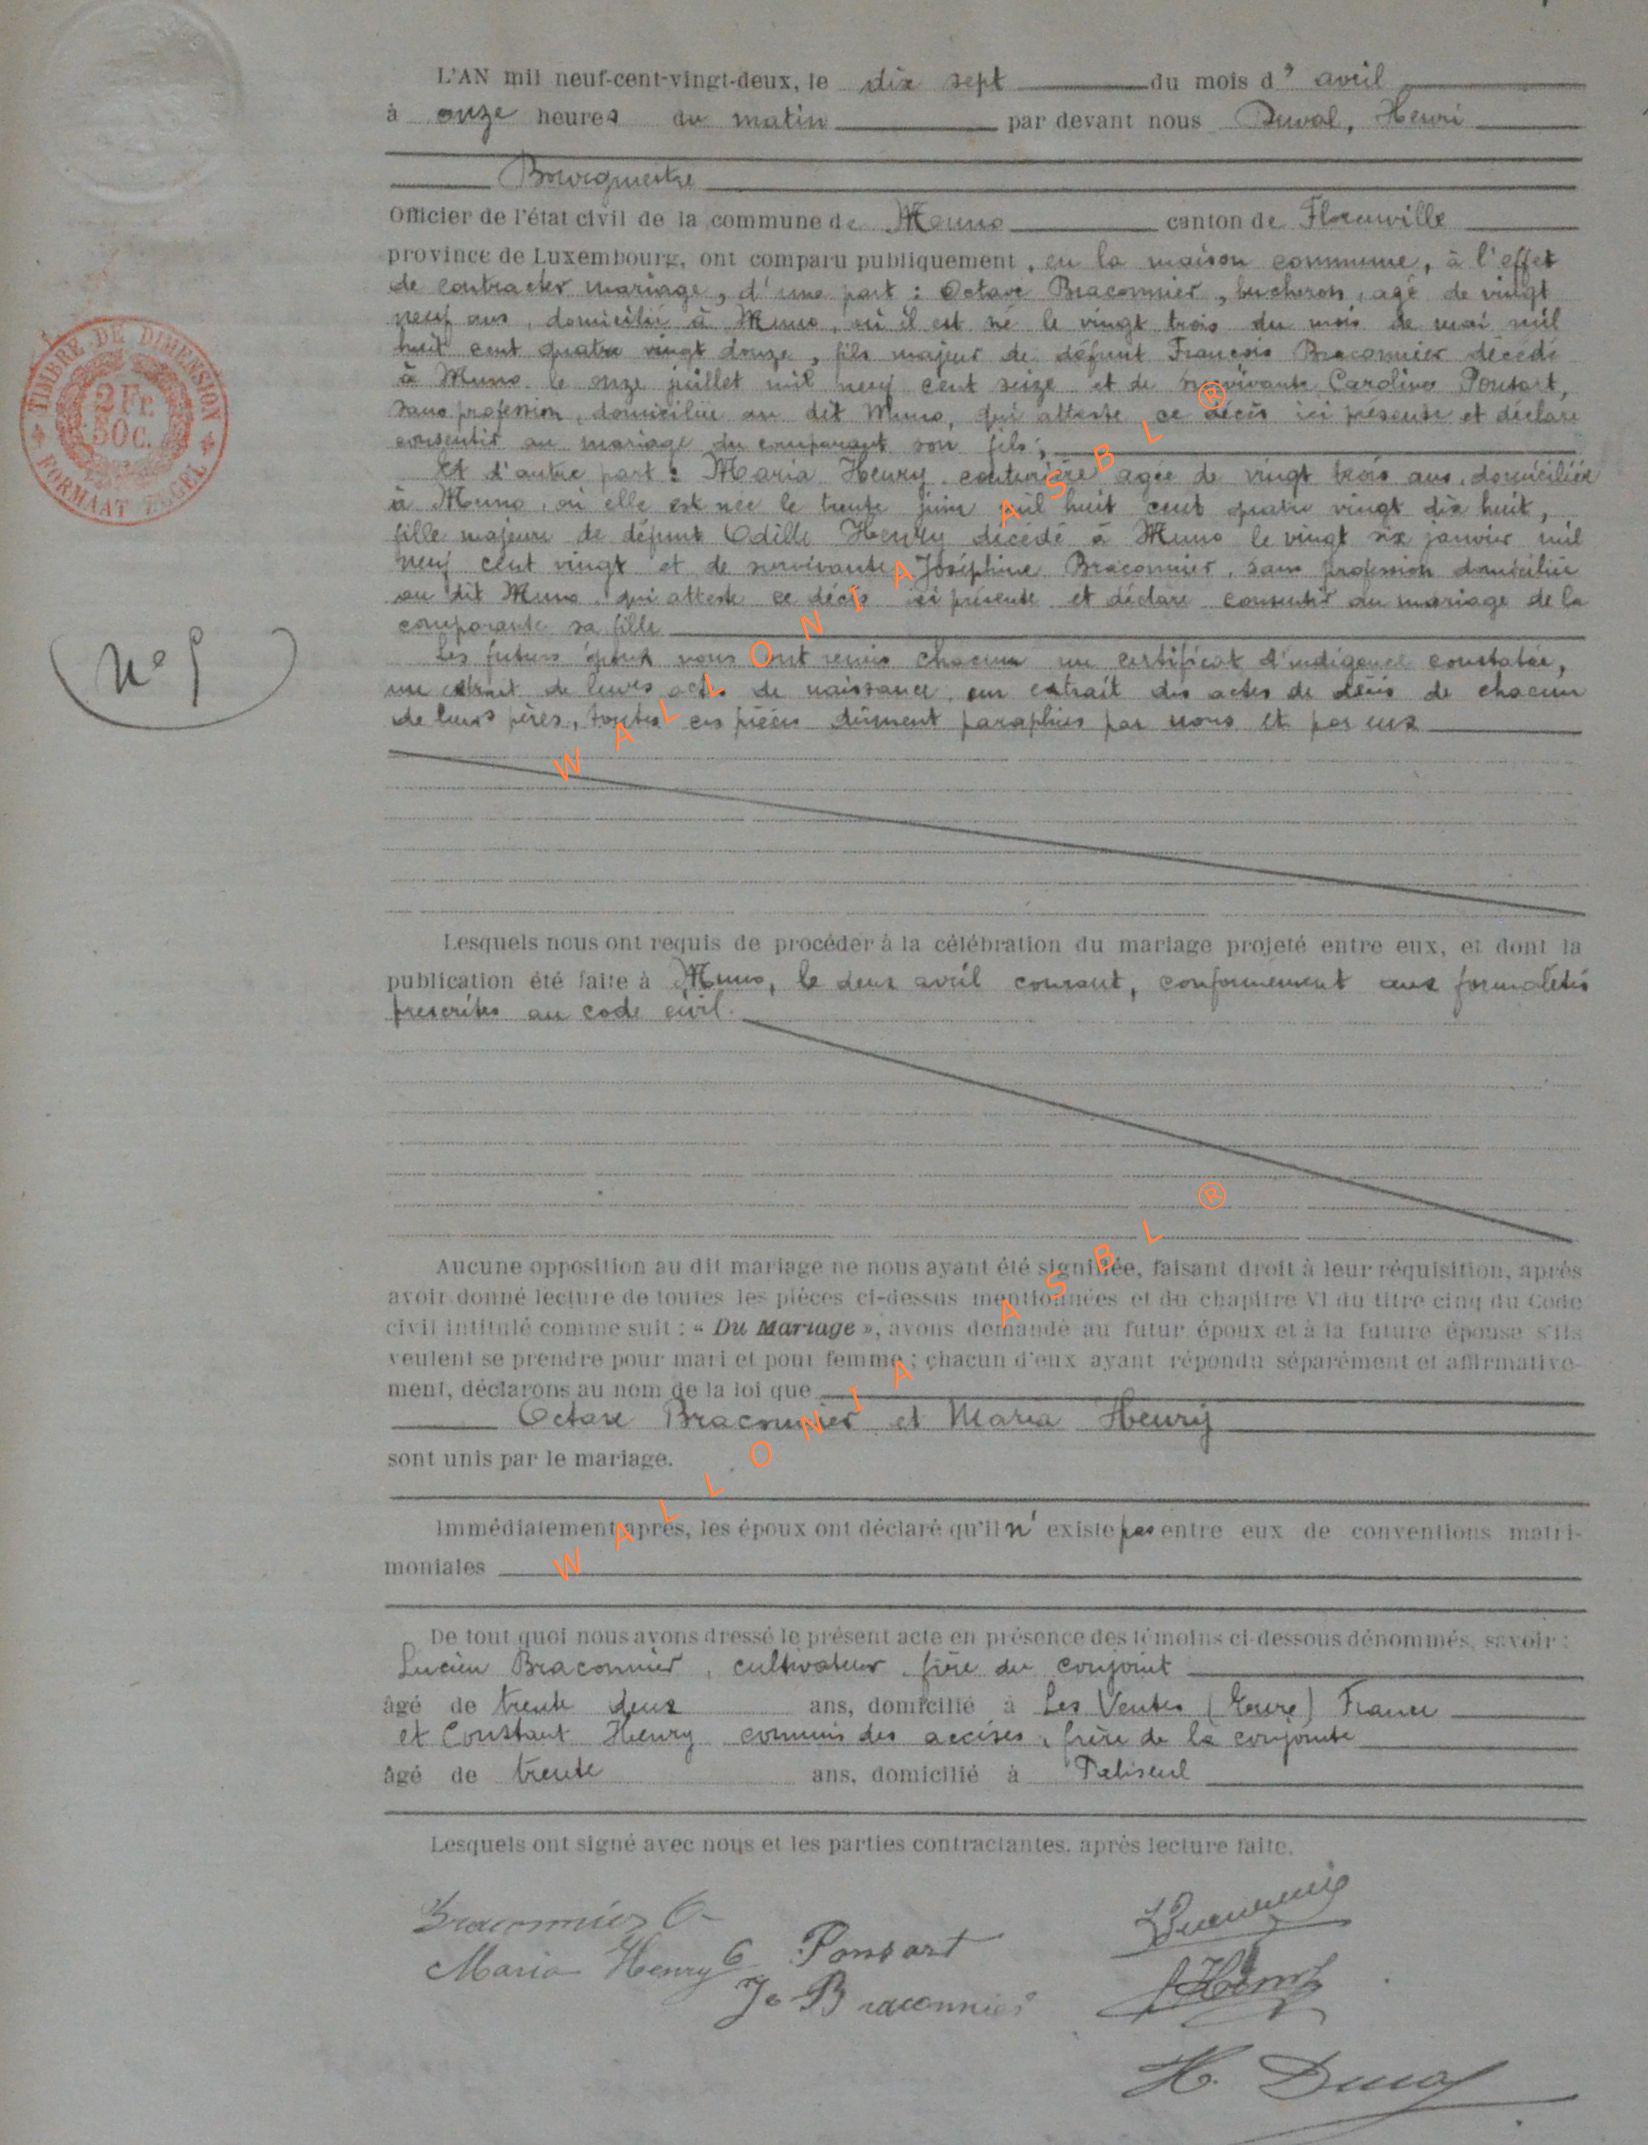 L'AN mil neuf-cent-vingt-deux, le dix sept du mois d' avril
à onze heures du matin par devant nous Duval, Henri
Bourgmestre
Officier de l'état civil de la commune de Muno canton de Florenville
province de Luxembourg, ont comparu publiquement, en la maison commune, à l'effet
de contracter mariage, d'une part : Octave Braconnier, bucheron, agé de vingt
neuf ans, domicilié à Muno, où il est né le vingt trois du mois de mai mil
huit cent quatre vingt douze, fils majeur de défunt François Braconnier décédé
à Muno le onze juillet mil neuf cent seize et de survivante Caroline Ponsart,
sans profession, domiciliée au dit Muno, qui atteste ce décès ici présente et déclare
consentir au mariage du comparant son fils;
Et d'autre part : Maria Henry couturière agée de vingt trois ans, domiciliée
à Muno, où elle est née le trente juin mil huit cent quatre vingt dix huit,
fille majeure de défunt Odille Henry décédé à Muno le vingt six janvier mil
neuf cent vingt et de survivante Joséphine Braconnier, sans profession domiciliée
au dit Muno qui atteste ce décès ici présente et déclare consentir au mariage de la
comparante sa fille
Les futurs époux nous ont remis chacun un certificat d'indigence constatée,
un extrait de leurs actes de naissance, un extrait des actes de décès de chacun
de leurs pères, toutes ces pièces dûment paraphées par nous et par eux
N° 5
TIMBRE DE DIMENSION
2 Fr.
50 c.
FORMAAT ZEGEL
Lesquels nous ont requis de procéder à la célébration du mariage projeté entre eux, et dont la
publication été faite à Muno, le deux avril courant, conformement aux formalités
prescrites au code civil.
Aucune opposition au dit mariage ne nous ayant été signifiée, faisant droit à leur réquisition, après
avoir donné lecture de toutes les pièces ci-dessus mentionnées et du chapitre VI du titre cinq du Code
civil intitulé comme suit : « Du Mariage », avons demandé au futur époux et à la future épouse s'ils
veulent se prendre pour mari et pour femme ; chacun d'eux ayant répondu séparément et affirmative-
ment, déclarons au nom de la loi que
Octave Braconnier et Maria Henry
sont unis par le mariage.
Immédiatement après, les époux ont déclaré qu'il n' existe pas entre eux de conventions matri-
moniales
De tout quoi nous avons dressé le présent acte en présence des témoins ci-dessous dénommés, savoir :
Lucien Braconnier, cultivateur frère du conjoint
âgé de trente deux ans, domicilié à Les Ventes (Eure) France
et Constant Henry commis des accises, frère de la conjointe
âgé de trente ans, domicilié à Paliseul
Lesquels ont signé avec nous et les parties contractantes, après lecture faite.
Braconnier O.
L Braconnier
Maria Henry C Ponsart
Je Braconnier
C Henry
H. Duval
WALLONIA ASBL ®
WALLONIA ASBL ®